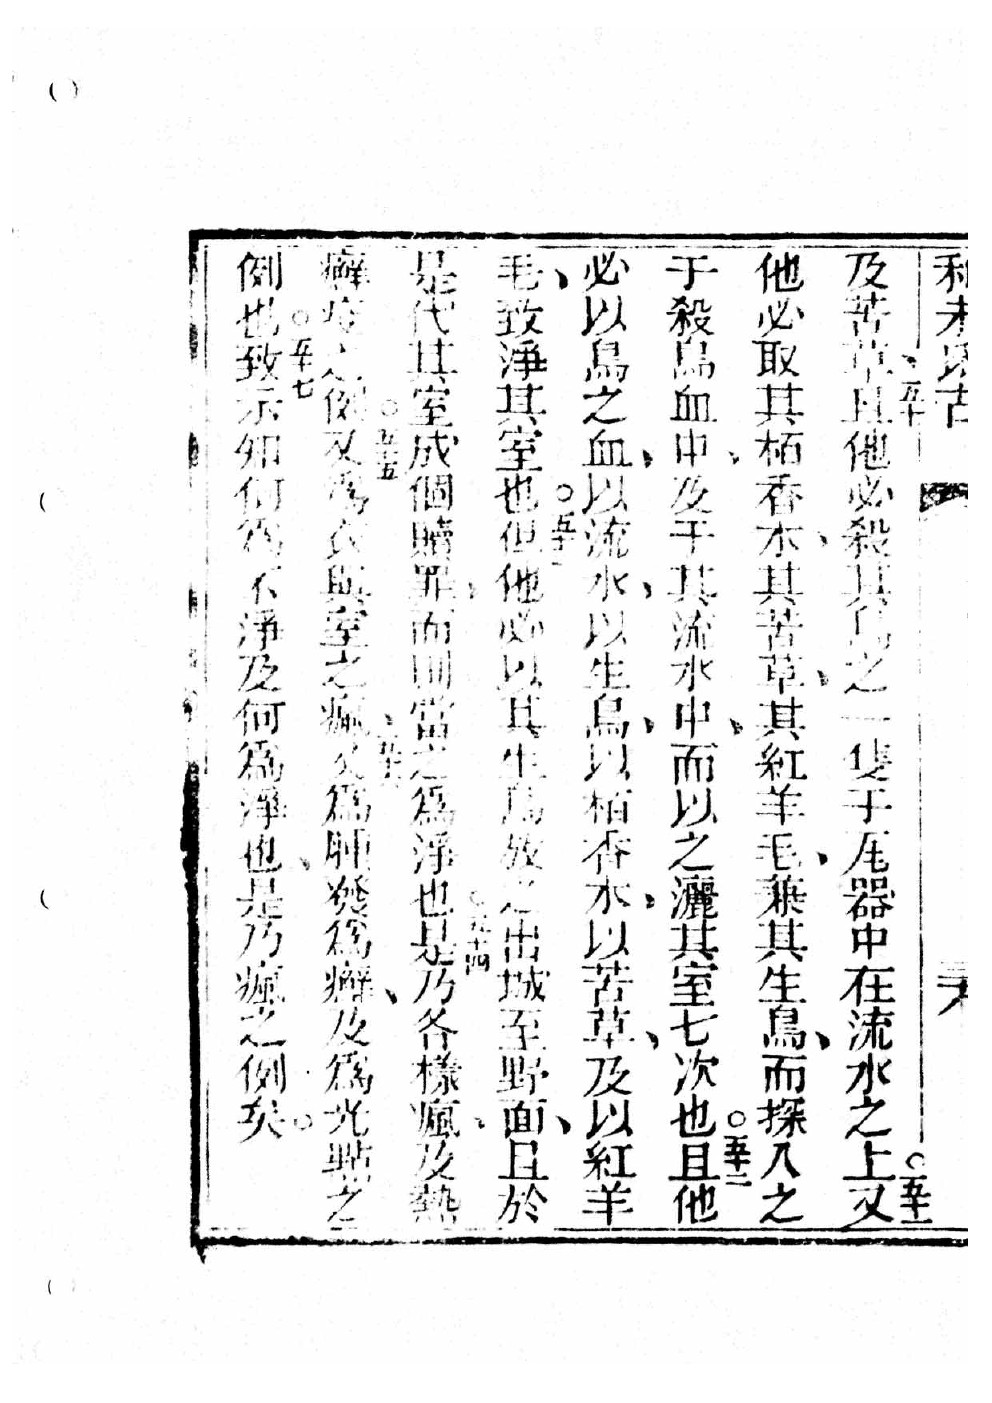 利未氏古
及苦草、五十且他必殺其鳥之一隻于瓦器中在流水之上○五十一又
他必取其栢香木、其苦草、其紅羊毛、兼其生鳥、而探入之
于殺鳥血中、及于其流水中、而以之灑其室七次也○五十二且他
必以鳥之血、以流水、以生鳥、以栢香木、以苦草、及以紅羊
毛、致淨其室也○五十三但他必以其生鳥放之出城至野面、且於
是代其室成個贖罪、而則當之為淨也○五十四是乃各樣瘋、及熱
癬疥之例○五十五又為衣與室之瘋、五十六又為腫發為癬、及為光點之
例也○五十七致示如何為不淨及何為淨也、是乃瘋之例矣○